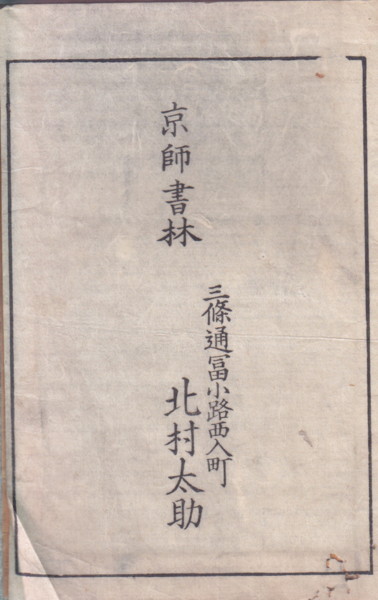 京師書林
三條通冨小路西入町
北村太助